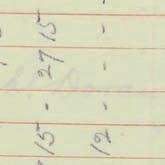 15 - 27 15
12 - - -